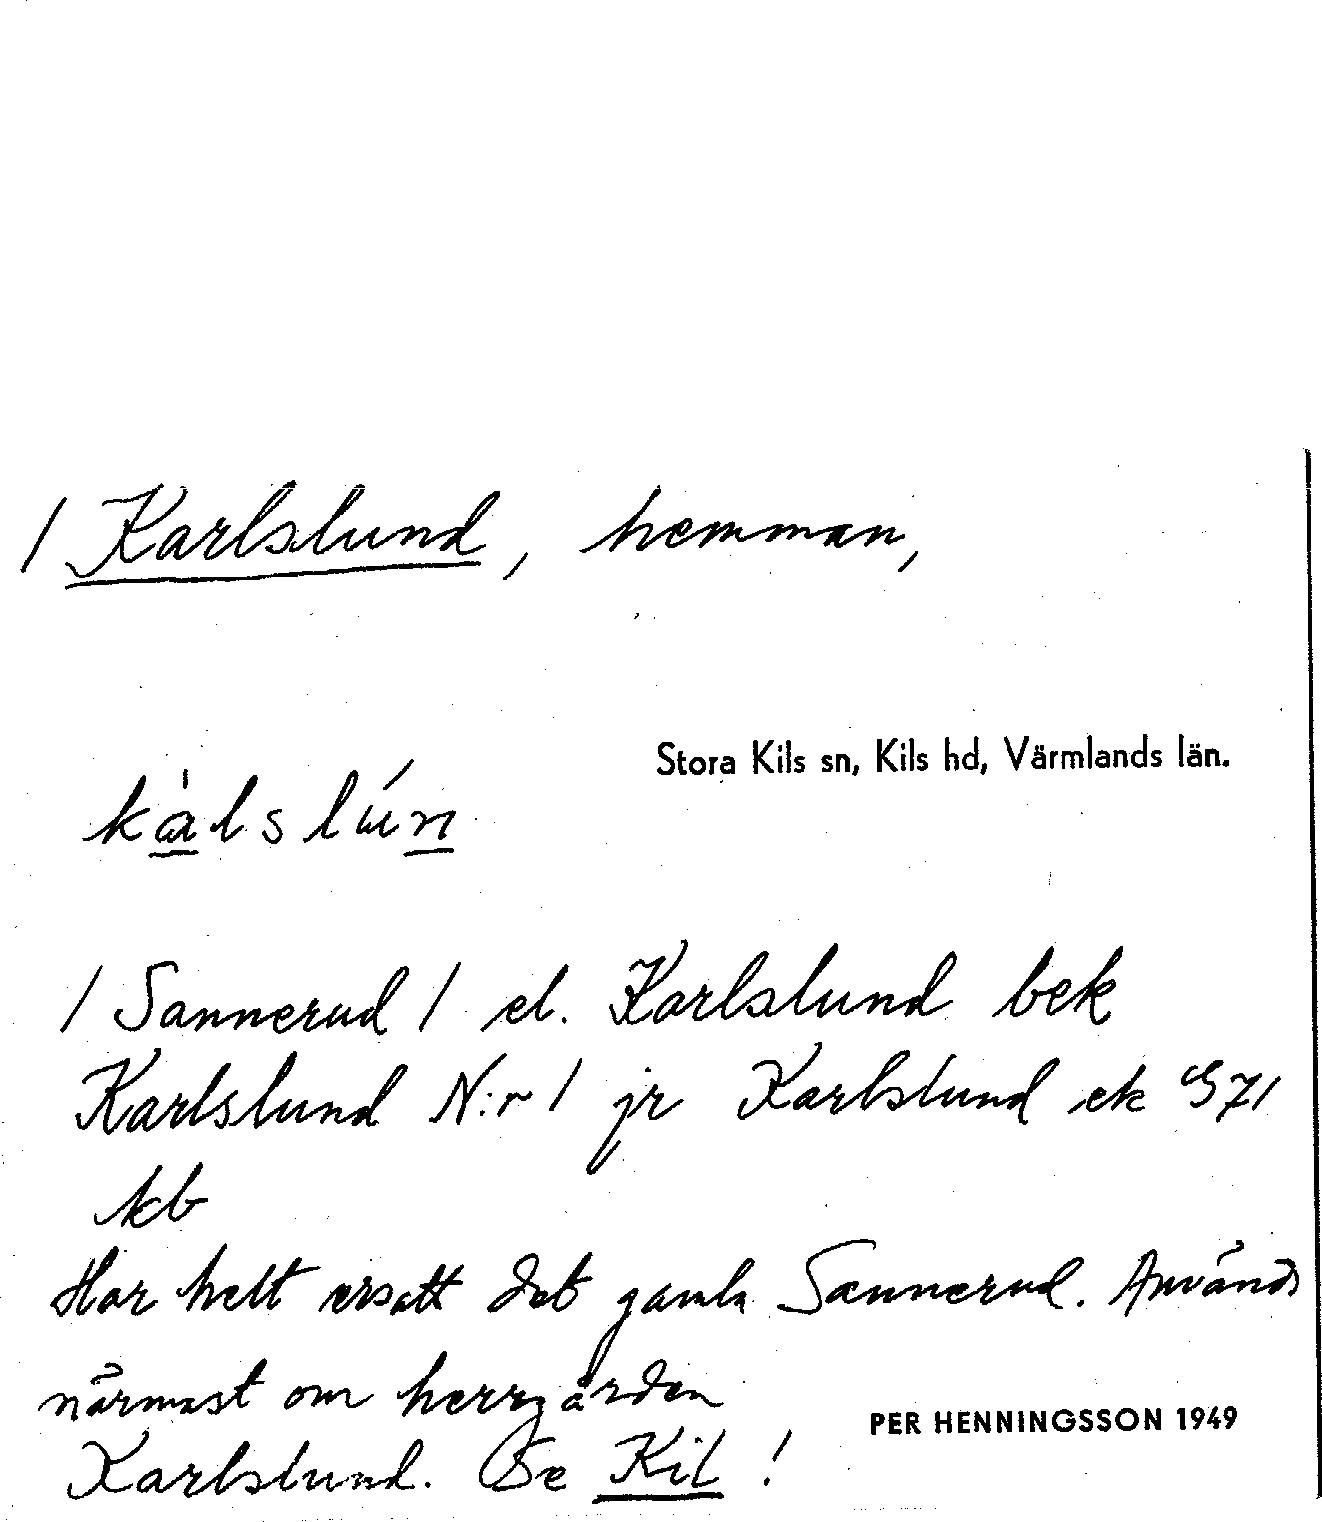 / Karlslund, hemman,
Stora Kils sn, Kils hd, Värmlands län.
kàlslún
/ Sannerud / el. Karlslund bek
Karlslund N:r 1 jr Karlslund ek G 71
kb
Har helt ersatt det gamla Sannerud. Används
närmast om herrgården
PER HENNINGSSON 1949
Karlslund. Se Kil !